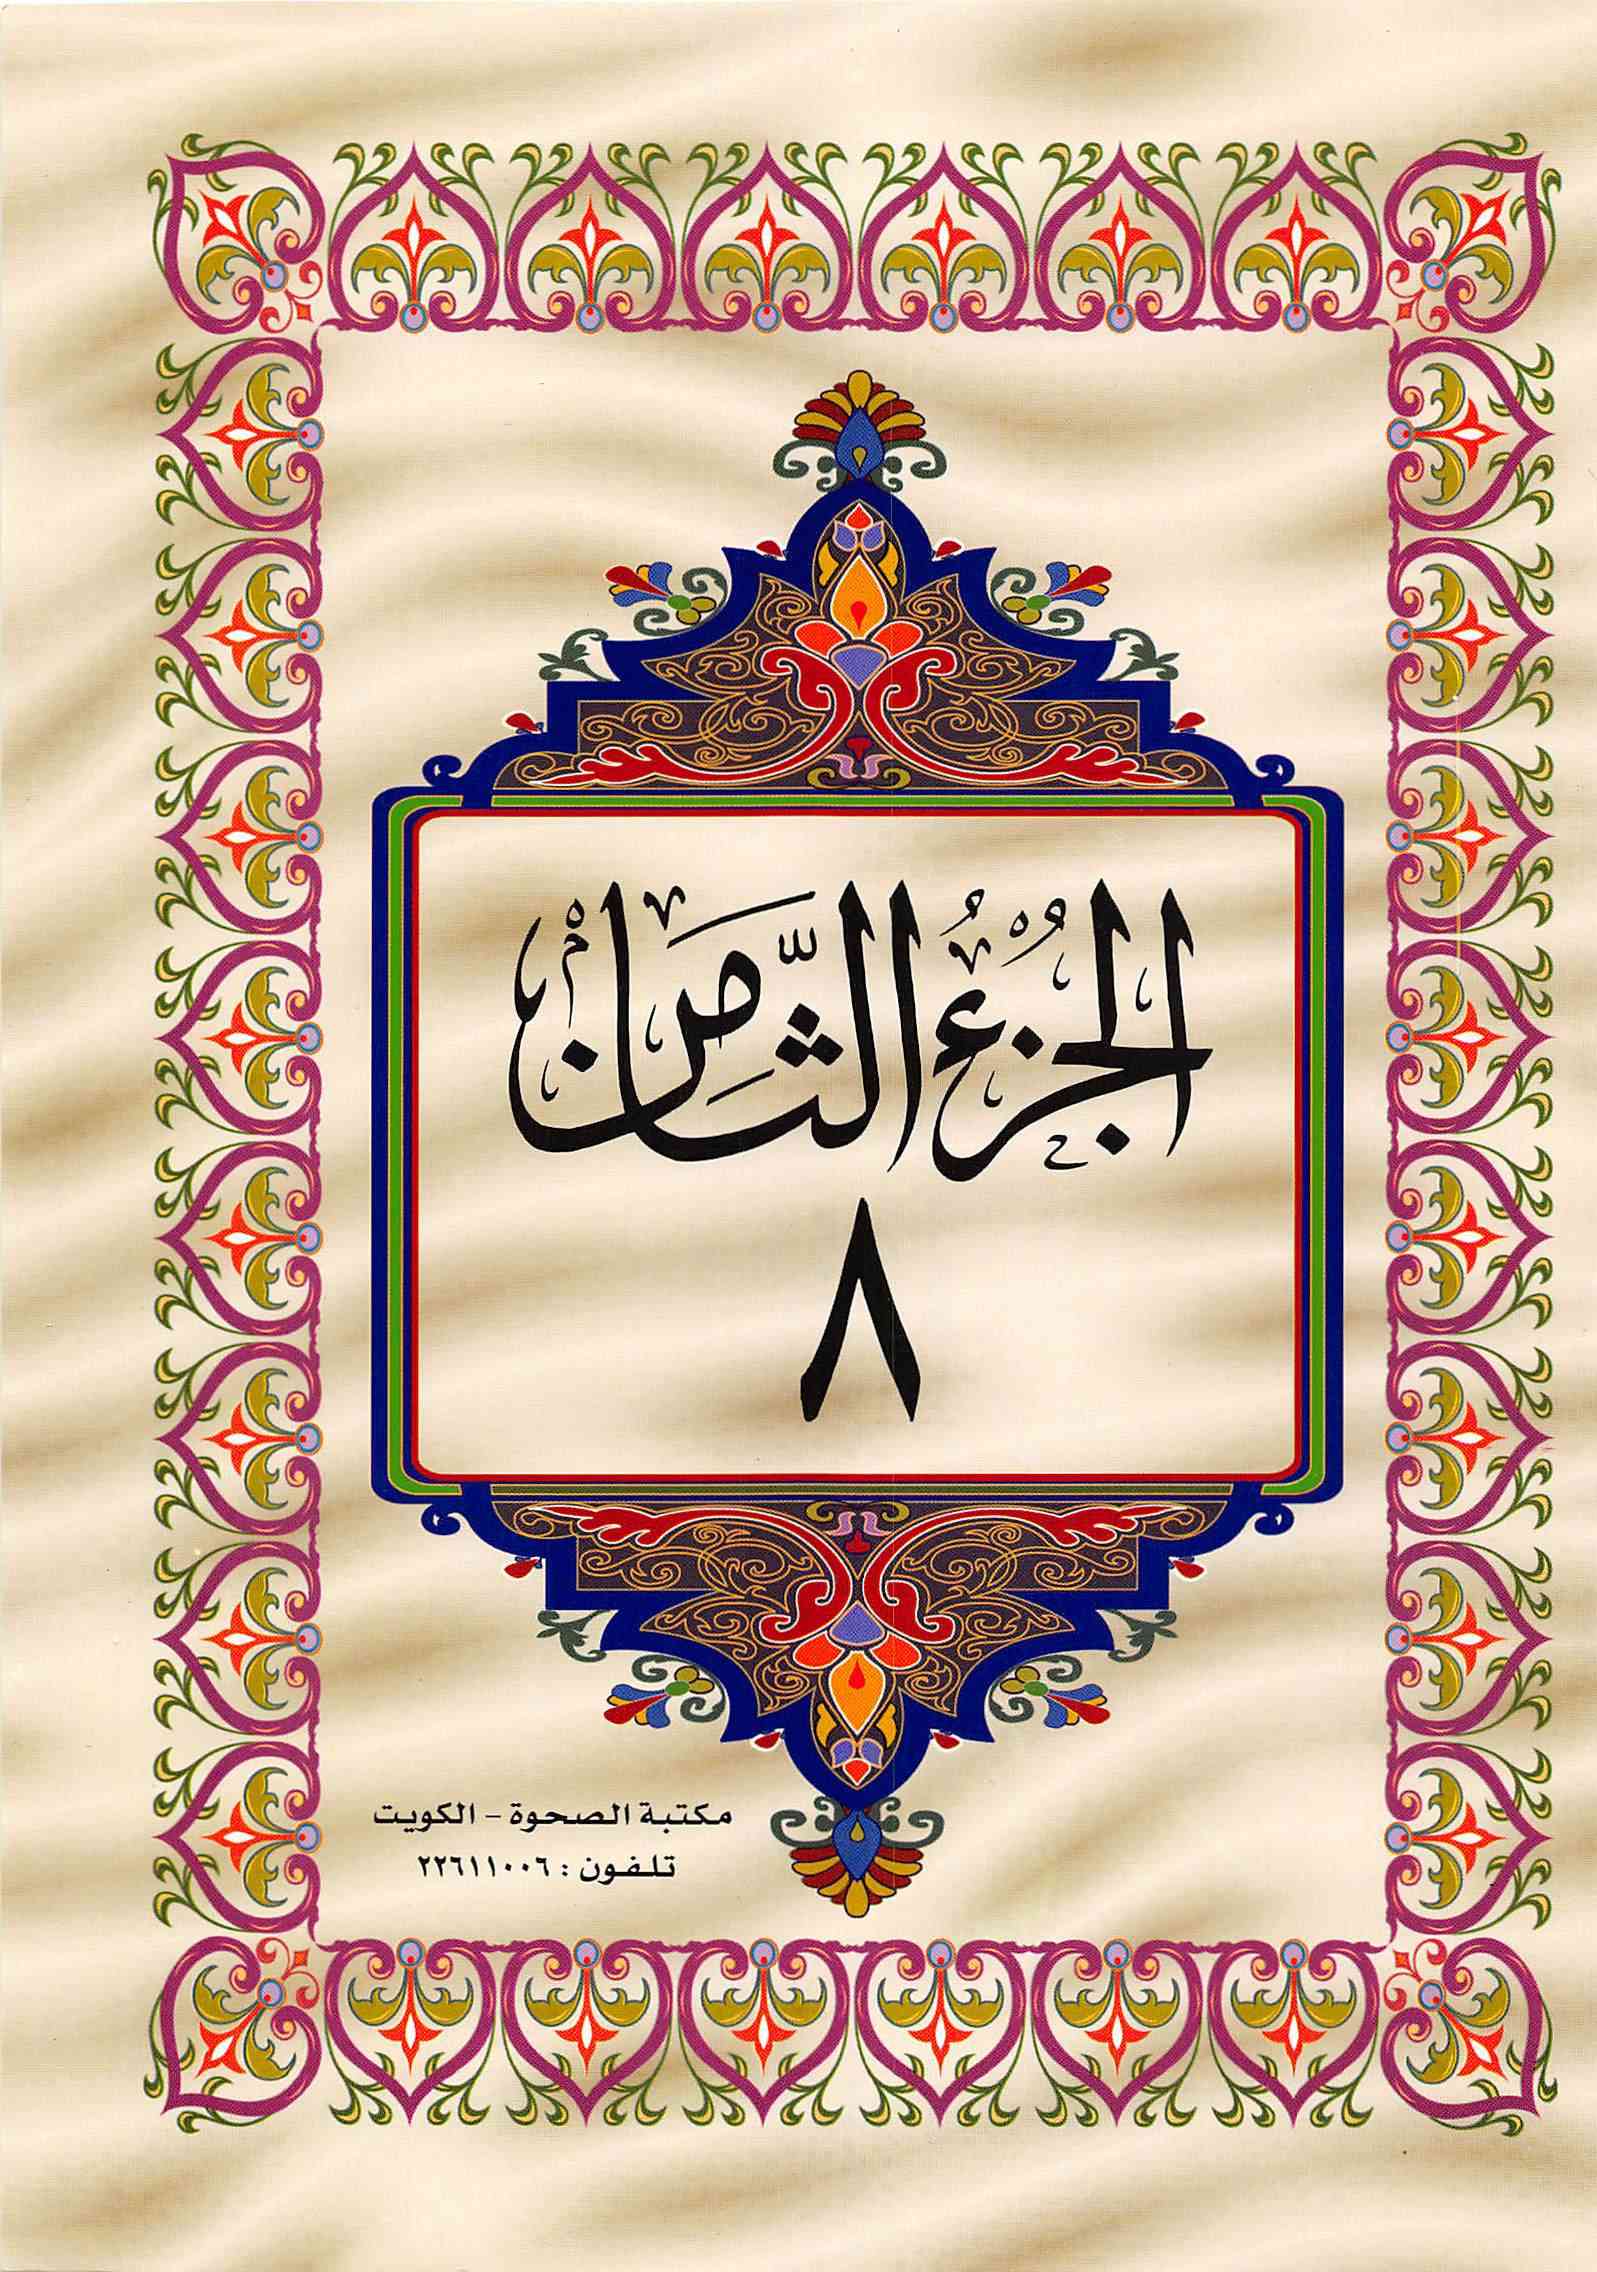 الجُزْءُ الثَّامِنْ
٨
مكتبة الصحوة - الكويت
تلفون : ٢٢٦١١٠٠٦